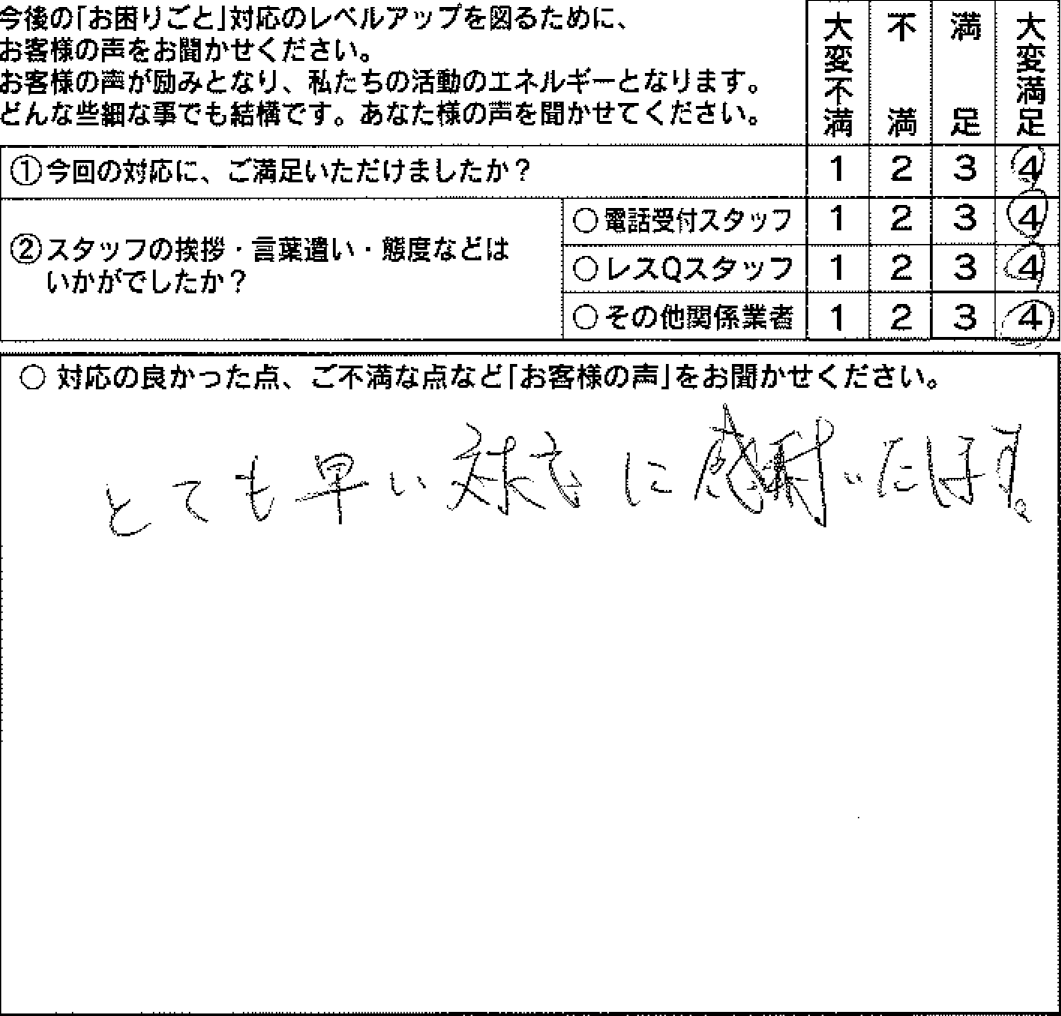 今後の「お困りごと」対応のレベルアップを図るために、
お客様の声をお聞かせください。
お客様の声が励みとなり、私たちの活動のエネルギーとなります。
どんな些細な事でも結構です。あなた様の声を聞かせてください。
大変不満 不満 満足 大変満足
①今回の対応に、ご満足いただけましたか? 1 2 3 4
②スタッフの挨拶・言葉遣い・態度などは
いかがでしたか?
○電話受付スタッフ 1 2 3 4
○レスQスタッフ 1 2 3 4
○その他関係業者 1 2 3 4
○ 対応の良かった点、ご不満な点など「お客様の声」をお聞かせください。
とても早い対応に感謝いたします。